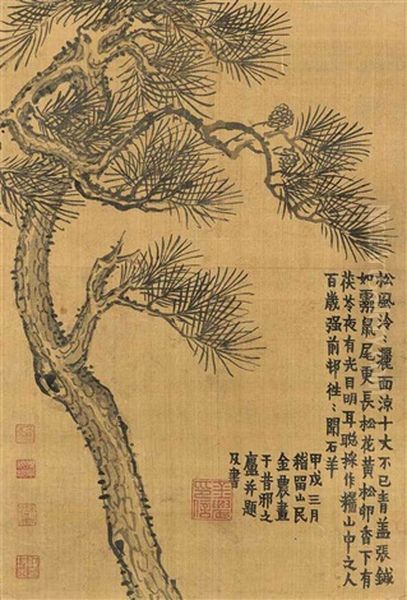 松風泠〻灑面涼十丈不已青蓋張鍼
如鼠尾更長松花黃松卵香下有
茯苓夜有光目明耳聰採作糧山中之人
百歲强前邨往〻聞石羊
甲戌三月
稽留山民
金農畫
于昔邪之
廬并題
及書
金農印信